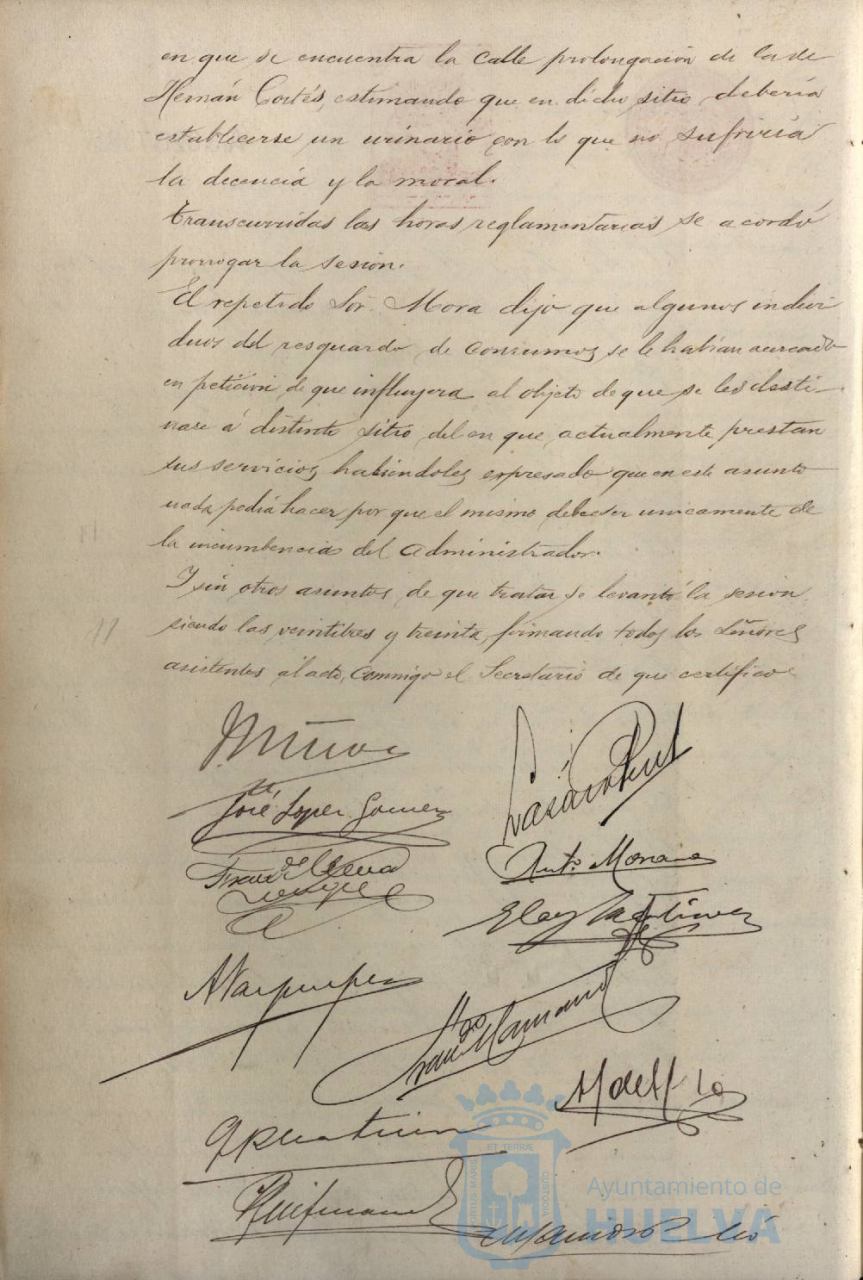 en que se encuentra la calle prolongación de la de
Hernán Cortés, estimando que en dicho sitio debería
establecerse un urinario con lo que no sufriría
la decencia y la moral.
Transcurridas las horas reglamentarias se acordó
prorrogar la sesión.
El repetido Sor. Mora dijo que algunos indivi
duos del resguardo de consumos se le habían acercado
en petición de que influyera al objeto de que se les desti-
nase á distinto sitio del en que actualmente prestan
sus servicios, habiéndoles expresado que en este asunto
nada podía hacer por que el mismo debe ser unicamente de
la incumbencia del Administrador.
Y sin otros asuntos de que tratar se levantó la sesión
siendo las veintitres y treinta, firmando todos los Señores
asistentes al acto, conmigo el Secretario de que certifico
José Lopez Gomez
Anto. Moreno
Eloy Martinez
Ayuntamiento de
HUELVA